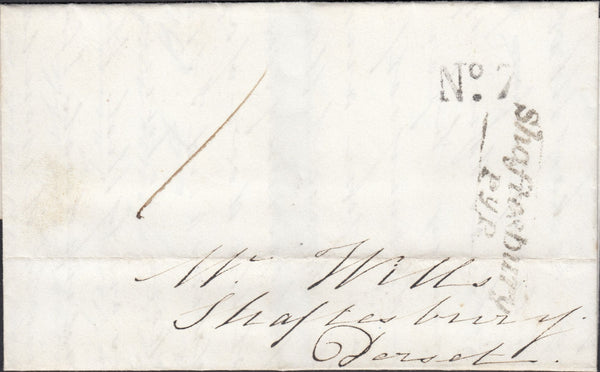 No. 7
Shaftesbury
Py P
1
Mr. Wills.
Shaftesbury.
Dorset.